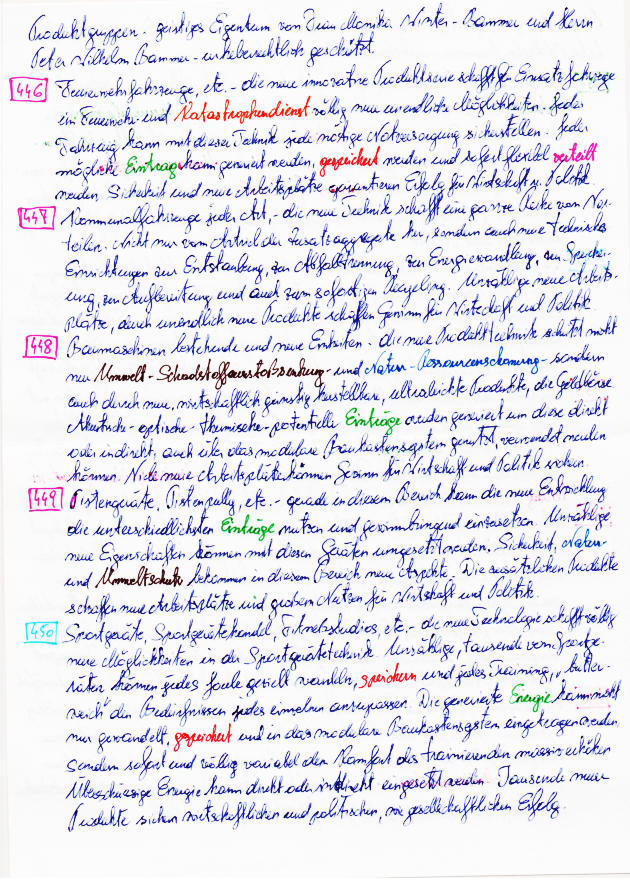 Produktgruppen - geistiges Eigentum von Frau Monika Winter-Bammer und Herrn
Peter Wilhelm Bammer - urheberrechtlich geschützt.
446 Feuerwehrfahrzeuge, etc. - die neue innovative Produktserie schafft für Einsatzfahrzeuge
im Feuerwehr- und Katastrophendienst völlig neue unendliche Möglichkeiten. Jedes
Fahrzeug kann mit dieser Technik jede nötige Notversorgung sicherstellen. Jeder
mögliche Eintrag kann generiert werden, gespeichert werden und sofort flexibel verteilt
werden. Sicherheit und neue Arbeitsplätze garantieren Erfolg für Wirtschaft u. Politik.
447 Kommunalfahrzeuge jeder Art, - die neue Technik schafft eine ganze Reihe von Vor-
teilen. Nicht nur vom Antrieb der Zusatzaggregate her, sondern auch neue technische
Einrichtungen zur Entstaubung, zur Abfalltrennung, zur Energiewandlung, zur Speicher-
ung, zur Aufbereitung und auch zum sofortigen Recycling. Unzählige neue Arbeits-
plätze, durch unendlich neue Produkte schaffen Gewinn für Wirtschaft und Politik.
448 Baumaschinen bestehende und neue Einheiten - die neue Produkttechnik schützt nicht
nur Umwelt-Schadstoffausstoßsenkung- und Natur-Ressourcenschonung - sondern
auch durch neue, wirtschaftlich günstig herstellbare, ultraleichte Produkte, die
akustische - optische - thermische - potentielle Einträge werden generiert um diese direkt
oder indirekt, auch über das modulare Baukastensystem genutzt, verwendet werden
können. Viele neue Arbeitsplätze können Gewinn für Wirtschaft und Politik
449 Pistengeräte, Pistenpully, etc. - gerade in diesem Bereich kann die neue Entwicklung
die unterschiedlichsten Einträge nutzen und gewinnbringend einzusetzen. Unzählige
neue Eigenschaften können mit diesen Geräten umgesetzt werden. Sicherheit, Natur-
und Umweltschutz bekommen in diesem Bereich neue Aspekte. Die zusätzlichen Produkte
schaffen neue Arbeitsplätze und großen Nutzen für Wirtschaft und Politik.
450 Sportgeräte, Sportgerätehandel, Fitnesstudios, etc. - die neue Technologie schafft völlig
neue Möglichkeiten in der Sportgerätetechnik. Unzählige, tausende von Sportge-
räten können jedes Joule gezielt wandeln, speichern und jedes Training, "butter-
weich" den Bedürfnissen jedes einzelnen anzupassen. Die generierte Energie kann nicht
nur gewandelt, gespeichert und in das modulare Baukastensystem eingetragen werden,
sondern sofort und völlig variabel den Komfort des trainierenden massiv erhöhen
Überschüssige Energie kann direkt oder indirekt eingesetzt werden. Tausende neue
Produkte sichern wirtschaftlichen und politischen, wie gesellschaftlichen Erfolg.